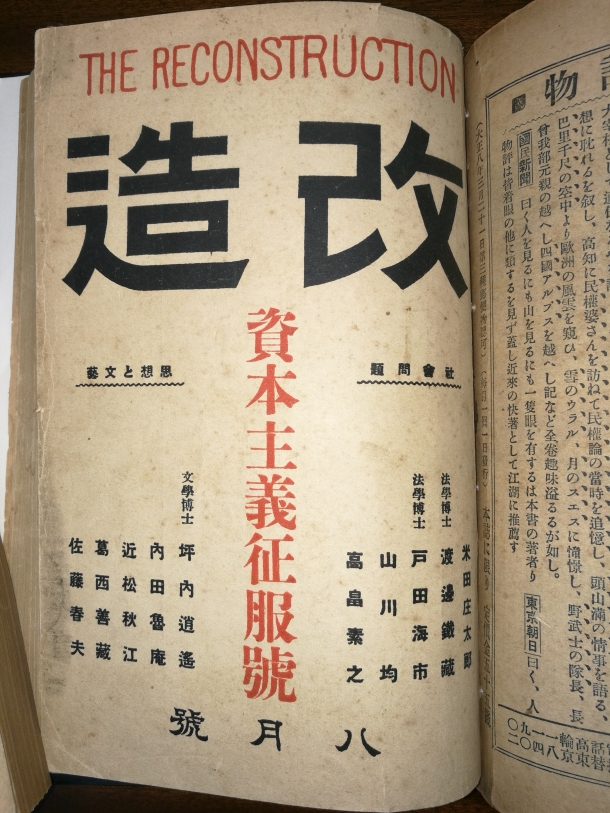 THE RECONSTRUCTION
改造
資本主義征服號
社會問題
米田庄太郎
法學博士 渡邊鐵藏
法學博士 戸田海市
山川均
高畠素之
思想と文藝
文學博士 坪內逍遙
內田魯庵
近松秋江
葛西善藏
佐藤春夫
八月號
物
想に耽れるを叙し、高知に民權婆さんを訪ねて民權論の當時を追憶し、頭山滿の情事を語る、
巴里千尺の空中より歐洲の風雲を窺ひ、雪のウラル、月のスエズに憧憬し、野武士の隊長、長
曾我部元親の越へし四國アルプスを越へし記など全卷趣味溢るるが如し。
國民新聞 曰く人を見るにも山を見るにも一隻眼を有するは本書の著者り 東京朝日 曰く、人
物評は皆着眼の他に類するを見ず蓋し近來の快著として江湖に推薦す
(大正八年三月二十一日第三種郵便物認可)